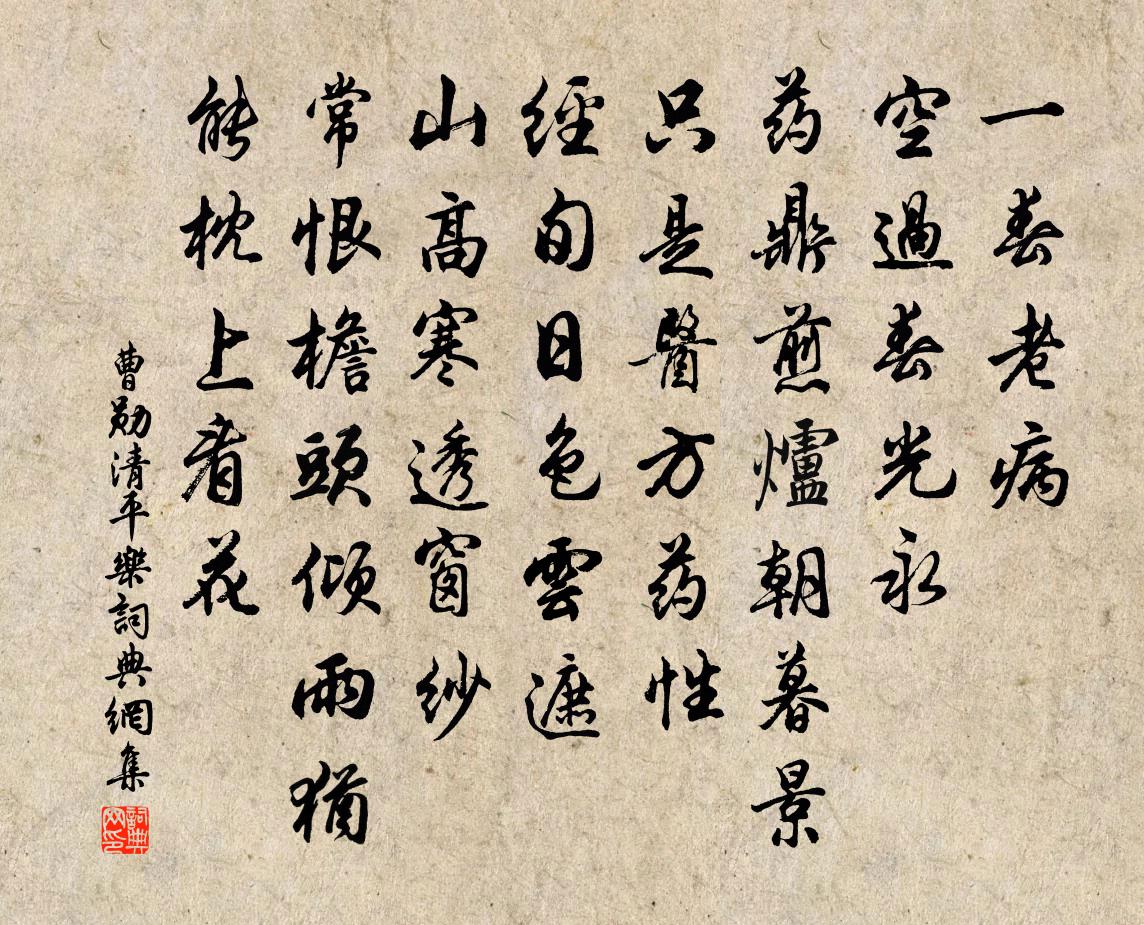 一春老病
空過春光永
药鼎煎爐朝暮景
只是醫方药性
經旬日色雲遮
山高寒透窗紗
常恨檐頭傾雨猶
能枕上看花
曹勛清平樂詞典網集
詞典网印